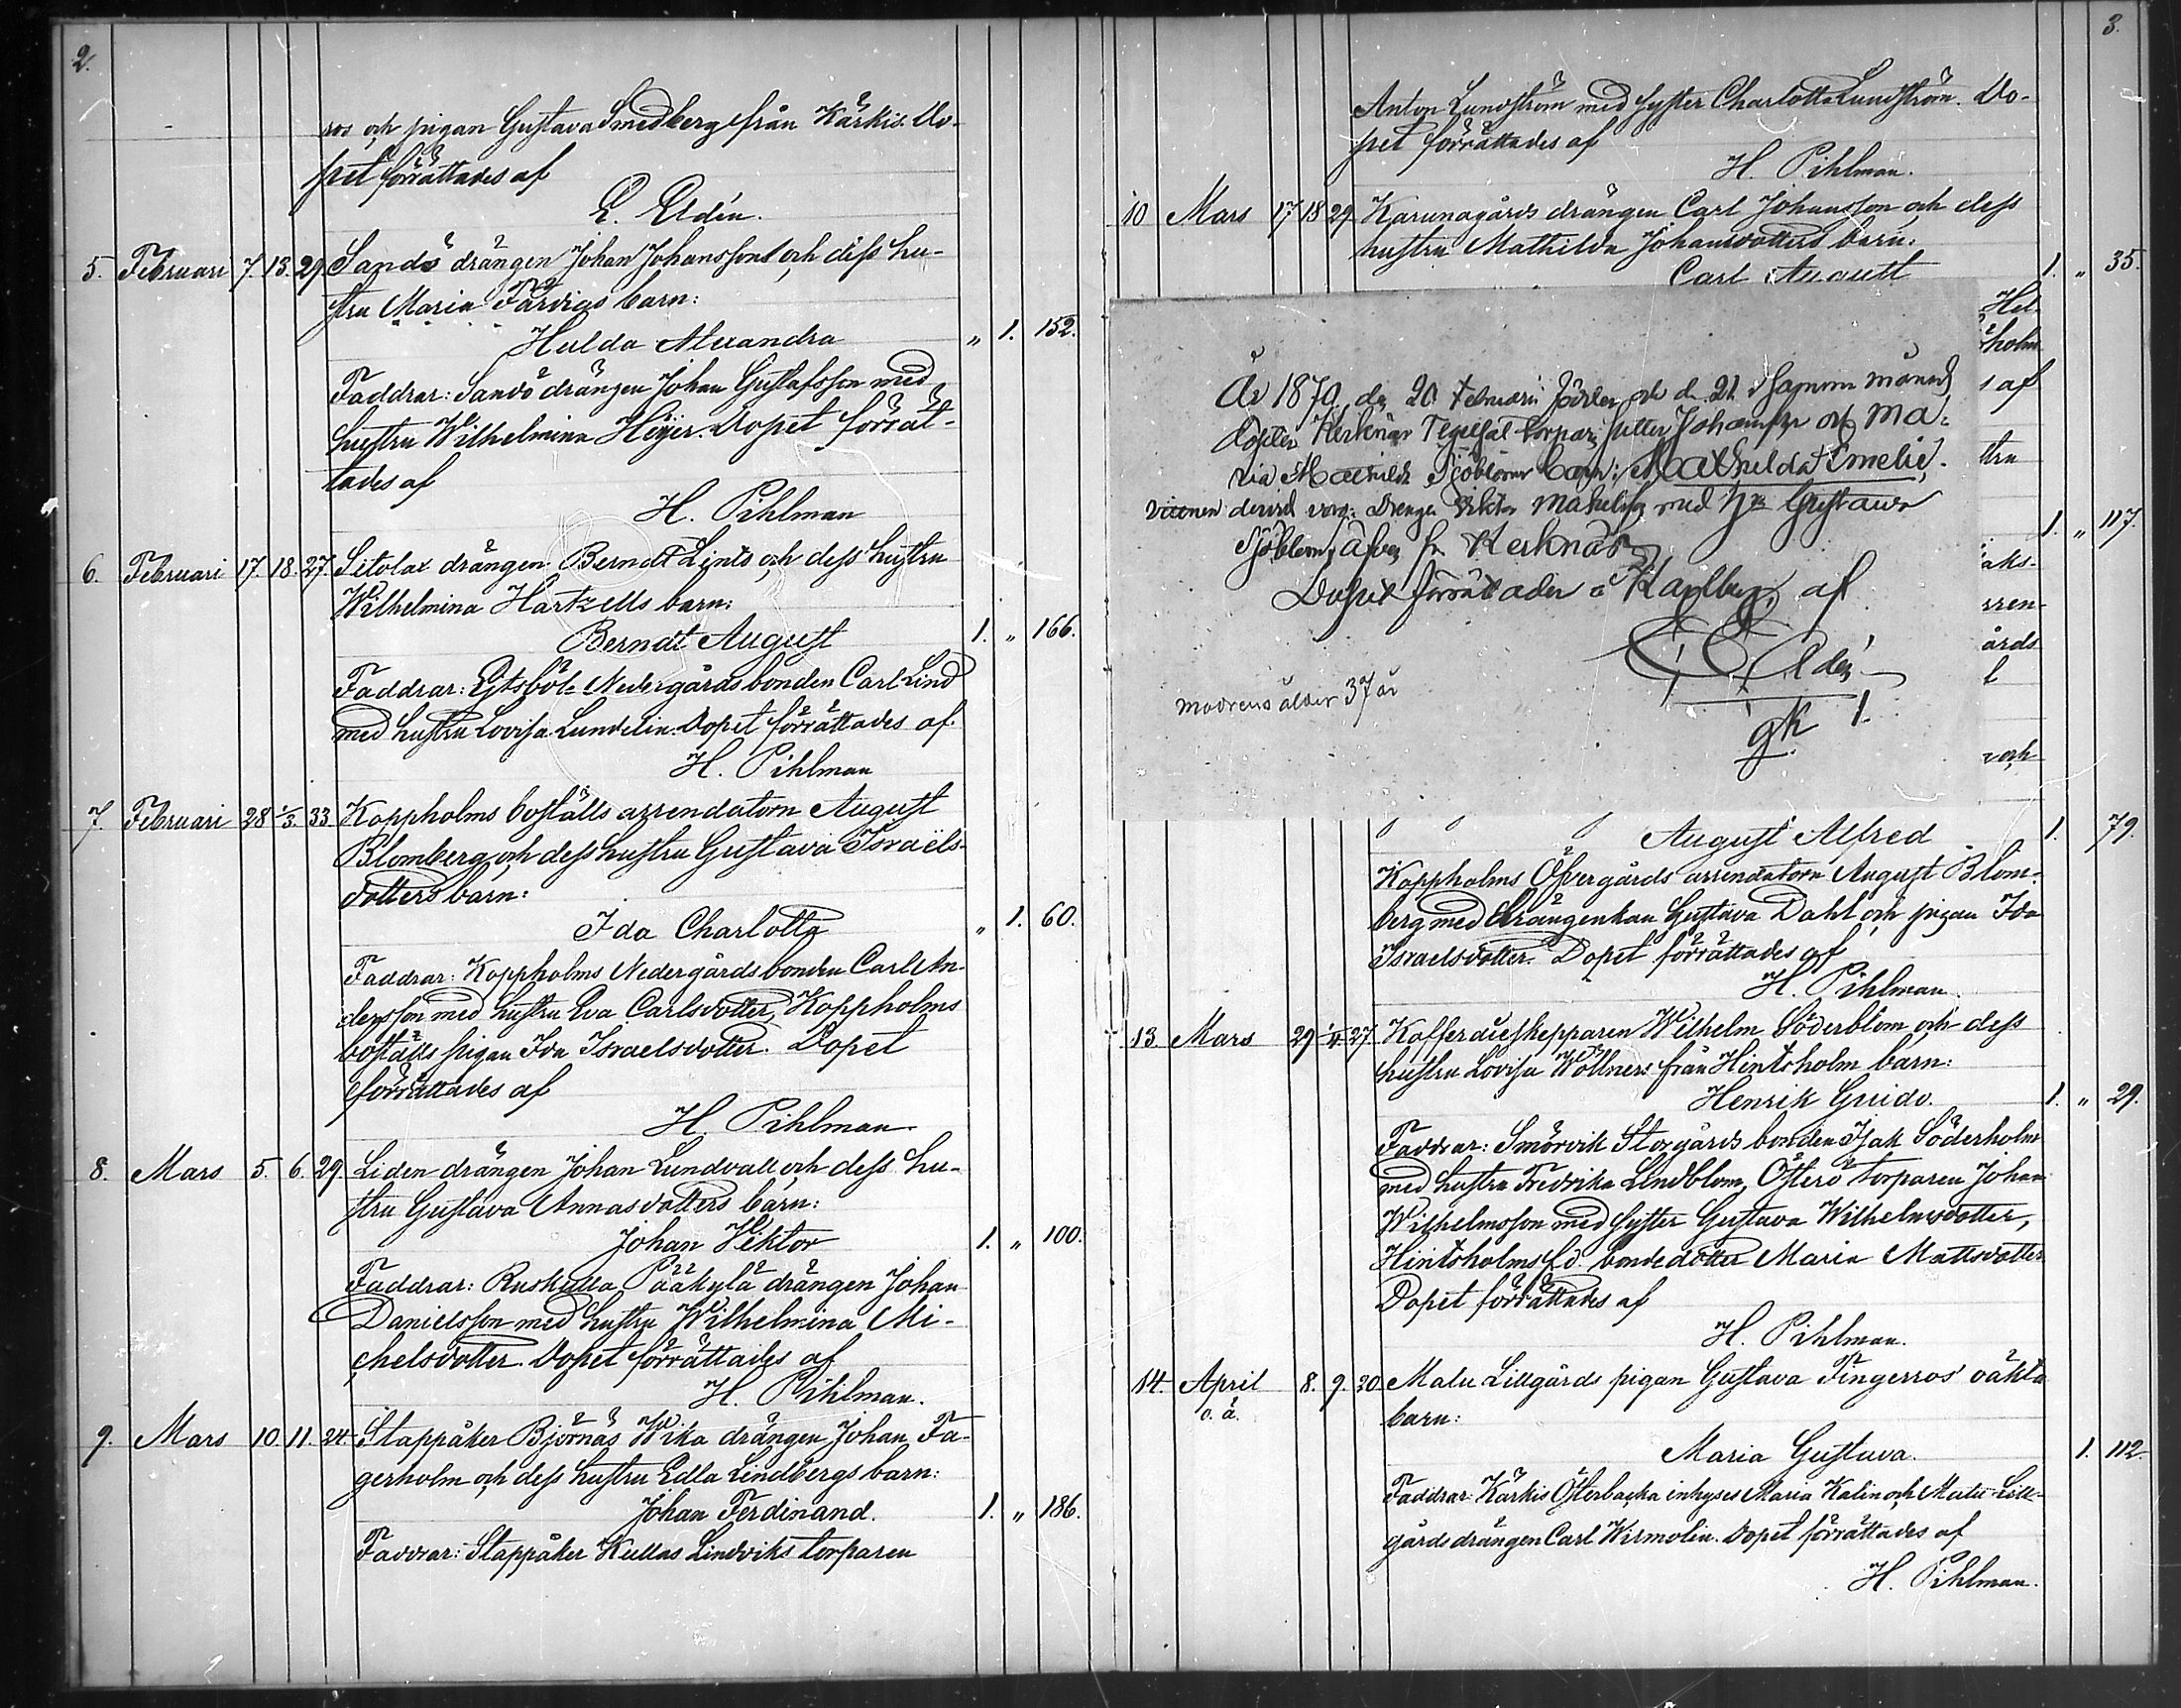 2.
ros och pigan Gustava Smedberg från Kärkis. Do-
pet förrättades af
E. Eldén.
5. Februari 7. 13. 29. Sandö drängen Johan Johanssons och dess hu-
stru Maria Färdigs barn:
Hulda Alexandra " 1. 152.
Faddrar: Sandö drängen Johan Gustafsson med
hustru Wilhelmina Höijer. Dopet förrät-
tades af
H. Pihlman
6. Februari 17. 18. 27. Sitolax drängen Berndt Linds och dess hustru
Wilhelmina Hartzells barn:
Berndt August 1. " 166.
Faddrar: Nedergårds bonden Carl Lind
med hustru Lovisa Lundelin. Dopet förrättades af
H. Pihlman
7. Februari 28 1/3. 33. Koppholms boställs arrendatorn August
Blomberg och dess hustru Gustava Israëls-
dotters barn:
Ida Charlotta " 1. 60.
Faddrar: Koppholms Nedergårds bonden Carl An-
dersson med hustru Eva Carlsdotter, Koppholms
boställs pigan Ida Israelsdotter. Dopet
förrättades af
H. Pihlman
8. Mars 5. 6. 29. Liden drängen Johan Lundvall och dess hu-
stru Gustava Annasdotters barn:
Johan Viktor 1. " 100.
Faddrar: Ruskulla Pääkylä drängen Johan
Danielsson med hustru Wilhelmina Mi-
chelsdotter. Dopet förrättades af
H. Pihlman.
9. Mars 10. 11. 24. Stappåker Björnäs Wika drängen Johan Fa-
gerholm och dess hustru Edla Lindbergs barn:
Johan Ferdinand. 1. " 186.
Faddrar: Stappåker Kullas Lindviks torparen
3.
Anton Lundström med syster Charlotta Lundström. Do-
pet förrättades af
H. Pihlman.
10 Mars 17 18 29 Karunagårds drängen Carl Johansson och dess
hustru Mathilda Johansdotters barn:
Carl August 1. " 35.
Hel-
holm
s af
stru
1. " 117.
aks-
rren-
årds
l
och
År 1879, den 20 Februari föddes och d. 21 i samma månad
döptes Kerknäs Tegelsal torpar Johansson och Ma-
ria Mathilda Sjöbloms barn: Mathilda Emelie.
vittnen dervid voro: Drengen Viktor med hu Gustava
Sjöblom, äfven fr Kerknäs
Dopet förrättades å Karlberg, af
E Eldén
modrens ålder 37 år
gk 1.
August Alfred 1. 79.
Koppholms Öfvergårds arrendatorn August Blom-
berg med drängenkan Gustava Dahl och pigan Ida
Israelsdotter. Dopet förrättades af
H. Pihlman
13. Mars 29 1/4 27 Kofferdieskepparen Wilhelm Söderblom och dess
hustru Lovisa Wöllners från Hintsholm barn:
Henrik Guido. 1. " 29.
Faddrar: Smörvik Storgårds bonden Isak Söderholm
med hustru Fredrika Lindblom, Österö torparen Johan
Wilhelmsson med syster Gustava Wilhelmsdotter,
Hintsholms f.d. bondedotter Maria Mattsdotter
Dopet förrättades af
H. Pihlman.
14. April 8. 9. 30. Malu Lillgårds pigan Gustava Fingerroos oäkta
o. ä. barn:
Maria Gustava. 1. 112.
Faddrar: Kärkis Österbacka inhyses Maria Kalin och Malu Lill-
gårds drängen Carl Wirmolin. Dopet förrättades af
H. Pihlman.